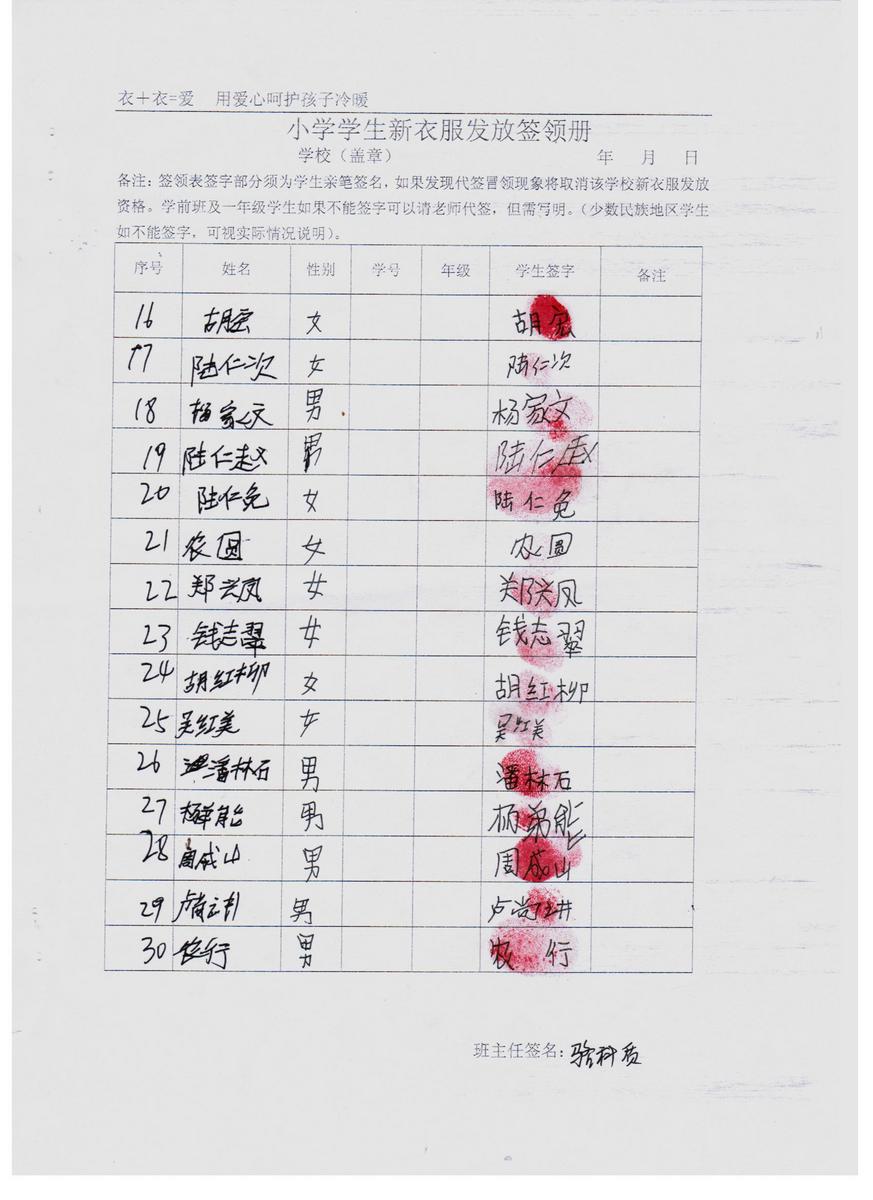 衣＋衣=爱 用爱心呵护孩子冷暖
小学学生新衣服发放签领册
学校（盖章） 年 月 日
备注：签领表签字部分须为学生亲笔签名，如果发现代签冒领现象将取消该学校新衣服发放
资格。学前班及一年级学生如果不能签字可以请老师代签，但需写明。（少数民族地区学生
如不能签字，可视实际情况说明）。
序号 姓名 性别 学号 年级 学生签字 备注
16 胡宏 女 胡宏
17 陆仁次 女 陆仁次
18 杨家文 男 杨家文
19 陆仁赵 男 陆仁赵
20 陆仁免 女 陆仁免
21 农圆 女 农圆
22 郑兴凤 女 郑兴凤
23 钱志翠 女 钱志翠
24 胡红柳 女 胡红柳
25 吴红美 女 吴红美
26 潘林石 男 潘林石
27 男 杨弟能
28 周成山 男 周成山
29 男
30 农行 男 农行
班主任签名：